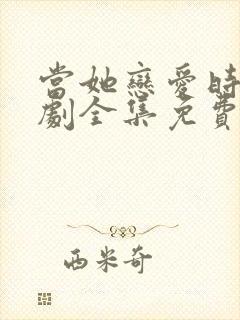 當她戀愛時
劇全集免費
西米奇